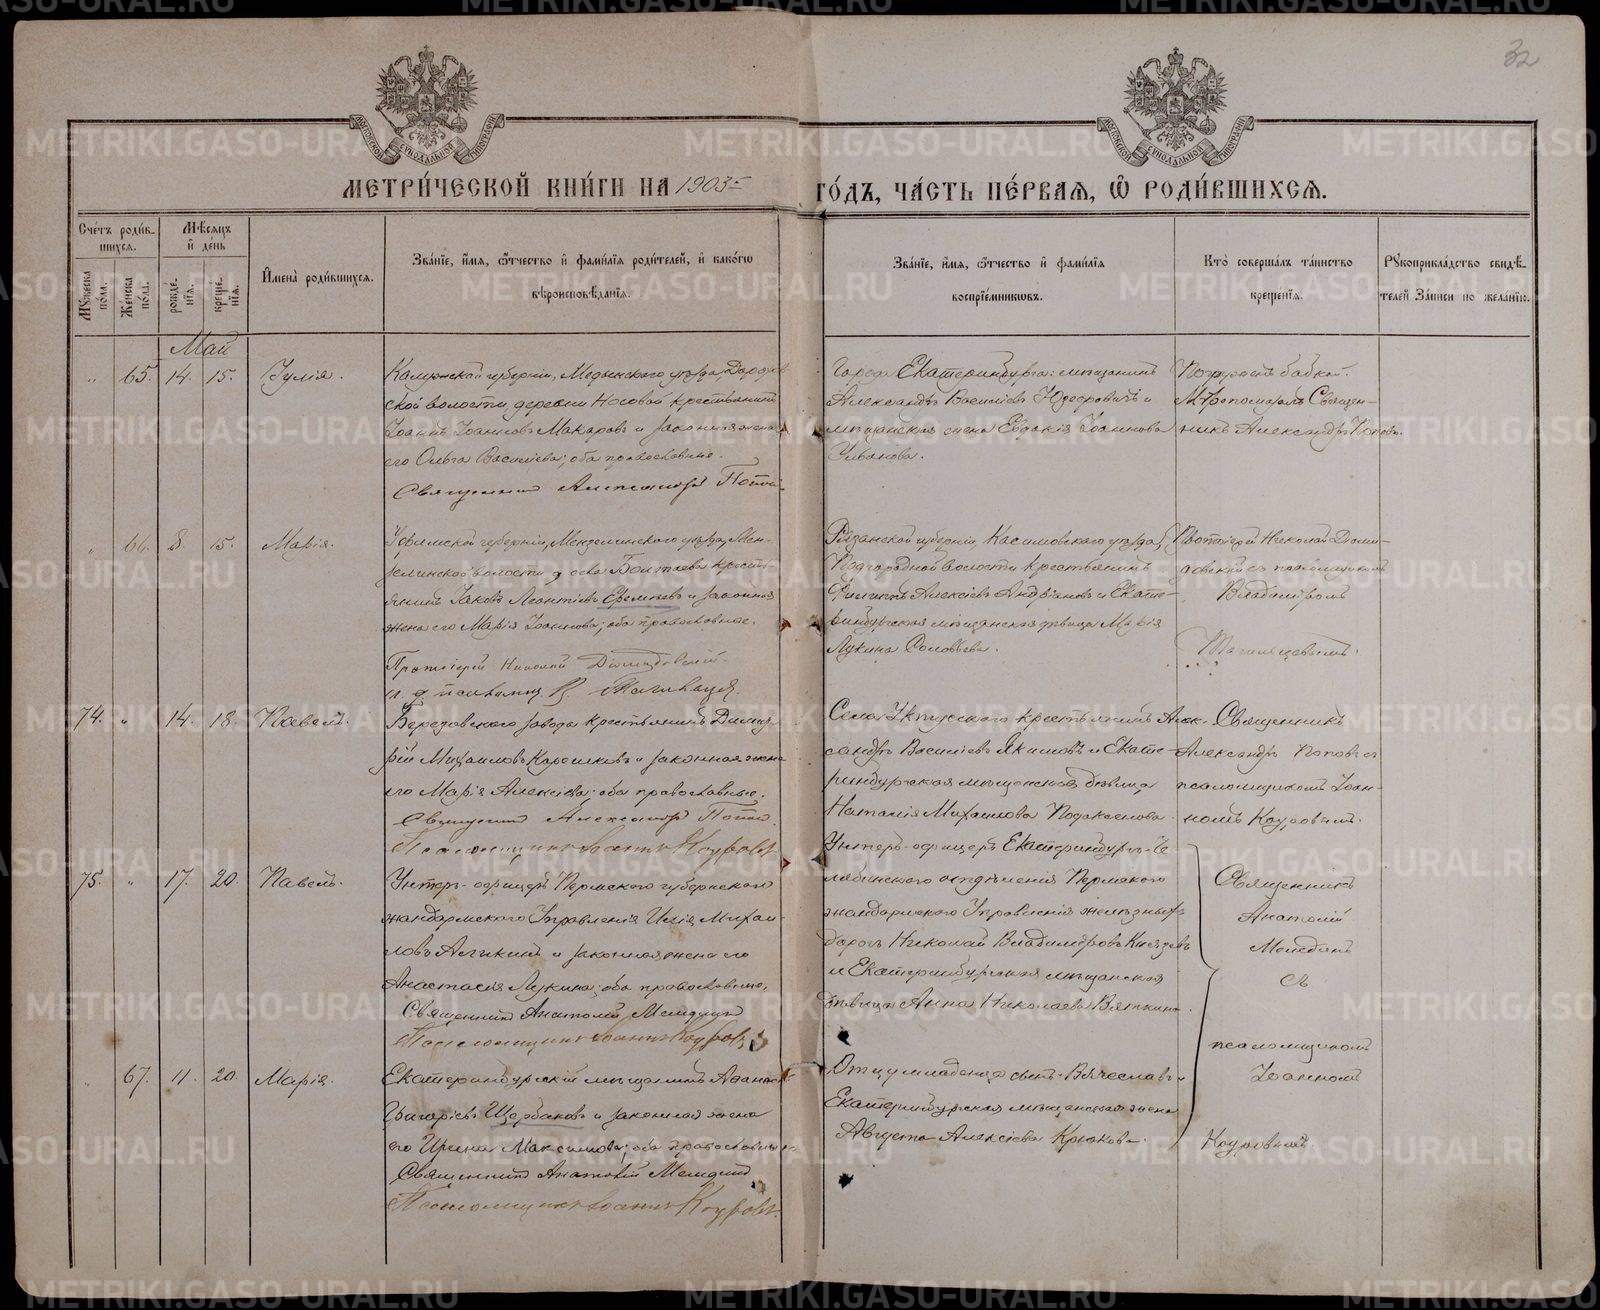 32
МОСКОВСКОЙ СѴНОДАЛЬНОЙ ТИПОГРАФІИ
МОСКОВСКОЙ СѴНОДАЛЬНОЙ ТИПОГРАФІИ
МЕТРИ́ЧЕСКОЙ КНИ́ГИ НА 1903 Г
ГО́ДЪ, ЧА́СТЬ ПЕ́РВАѦ, Ѡ҆ РОДИ́ВШИХСѦ.
Сче́тъ роди́в-
шихся.
Мѣ́сяцъ
и҆ де́нь
Мꙋ́жеска по́ла.
Же́нска по́ла.
рожде́-
нїѧ.
креще́-
нїѧ.
И҆мена̀ роди́вшихсѧ.
Зва́нїе, и҆́мѧ, ѻ҆́тчество и҆ фами́лїѧ роди́телей, и҆ како́гѡ
вѣроисповѣ́данїѧ.
Зва́нїе, и҆́мѧ, ѻ҆́тчество и҆ фами́лїѧ
воспрїе́мникѡвъ.
Кто̀ соверша́лъ та́инство
креще́нїѧ.
Рꙋкоприкла́дство свидѣ́-
телей за́писи по жела́нїю.
Май
" 65. 14. 15. Іулія.
Калужской губерніи, Медынскаго уѣзда,
ской волости, деревни Носовой крестьянинъ
Іоаннъ Іоанновъ Макаровъ и законная жена
его Ольга Василіева; оба православные.
Священникъ Александръ Поповъ
Города Екатеринбурга: мѣщанинъ
Александръ Василіевъ и
мѣщанская жена Евдокія Іоаннова
Иванова.
Погружена бабкой.
Священ-
никъ Александръ Поповъ.
" 66. 8. 15. Марія.
Уфимской губерніи, Мензелинскаго уѣзда, Мен-
зелинской волости крестья-
нинъ Іаковъ Леонтіевъ Еремѣевъ и законная
жена его Марія Іоаннова; оба православные.
Протоіерей Николай
Рязанской губерніи, Касимовскаго уѣзда,
Подгородной волости крестьянинъ
Филиппъ Алексіевъ Андріановъ и Екате-
ринбургская мѣщанская дѣвица Марія
Лукина Соловьева.
Протоіерей Николай
съ псаломщикомъ
Владиміромъ
74. " 14. 18. Павелъ.
Березовскаго завода крестьянинъ Димит-
рій Михаиловъ и законная жена
его Марія Алексіева; оба православные.
Священникъ Александръ Поповъ.
Псаломщикъ Іоаннъ Коуровъ
Села Уктусскаго крестьянинъ Алек-
сандръ Василіевъ Якимовъ и Екате-
ринбургская мѣщанская дѣвица
Наталія Михаилова
Священникъ
Александръ Поповъ съ
псаломщикомъ Іоан-
номъ Коуровымъ.
75. " 17. 20. Павелъ.
Унтеръ-офицеръ Пермскаго губернскаго
жандармскаго Управленія Илія Михаи-
ловъ и законная жена его
Анастасія Лукина; оба православные.
Священникъ Анатолій
Псаломщикъ Іоаннъ Коуровъ
Унтеръ-офицеръ Екатеринбургъ-Че-
лябинскаго отдѣленія Пермскаго
жандармскаго Управленія желѣзныхъ
дорогъ Николай Владиміровъ Князевъ
и Екатеринбургская мѣщанская
дѣвица Анна Николаева Вяткина.
Священникъ
Анатолій
съ
псаломщикомъ
Іоанномъ
Коуровымъ
" 67. 11. 20. Марія.
Екатеринбургскій мѣщанинъ
Григоріевъ Щербаковъ и законная жена
его Ирина Максимова; оба православные.
Священникъ Анатолій
Псаломщикъ Іоаннъ Коуровъ.
Екатеринбургская мѣщанская жена
Августа Алексіева Крюкова.
METRIKI.GASO-URAL.RU